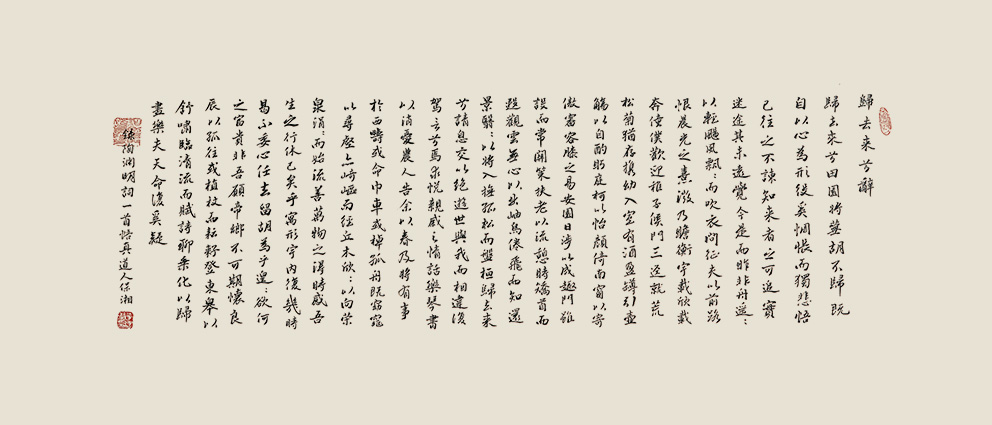 歸去來兮辭
歸去來兮田園將蕪胡不歸既
自以心為形役奚惆悵而獨悲悟
已往之不諫知來者之可追實
迷途其未遠覺今是而昨非舟遙〻
以輕颺風飄〻而吹衣問征夫以前路
恨晨光之熹微乃瞻衡宇載欣載
奔僮僕歡迎稚子候門三逕就荒
松菊猶存攜幼入室有酒盈罇引壺
觴以自酌眄庭柯以怡顏倚南窗以寄
傲審容膝之易安園日涉以成趣門雖
設而常關策扶老以流憩時矯首而
遐觀雲無心以出岫鳥倦飛而知還
景翳〻以將入撫孤松而盤桓歸去來
兮請息交以絕遊世與我而相違復
駕言兮焉求悅親戚之情話樂琴書
以消憂農人告余以春及將有事
於西疇或命巾車或棹孤舟既窈窕
以尋壑亦崎嶇而經丘木欣〻以向榮
泉涓〻而始流善萬物之得時感吾
生之行休已矣乎寓形宇內復幾時
曷不委心任去留胡為乎遑〻欲何
之富貴非吾願帝鄉不可期懷良
辰以孤往或植杖而耘耔登東皋以
舒嘯臨清流而賦詩聊乘化以歸
盡樂夫天命復奚疑
錄陶淵明詞一首悟真道人保湘